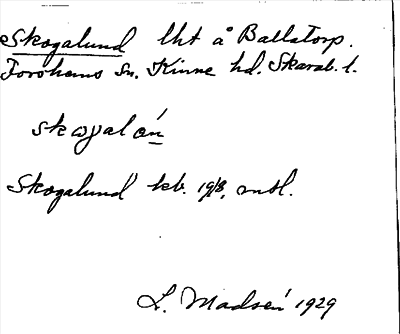 Skogalund lht å Ballstorp.
Forshems sn. Kinne hd. Skarab. l.
Skogalund kb. 1918, mtl.
L. Madsén 1929